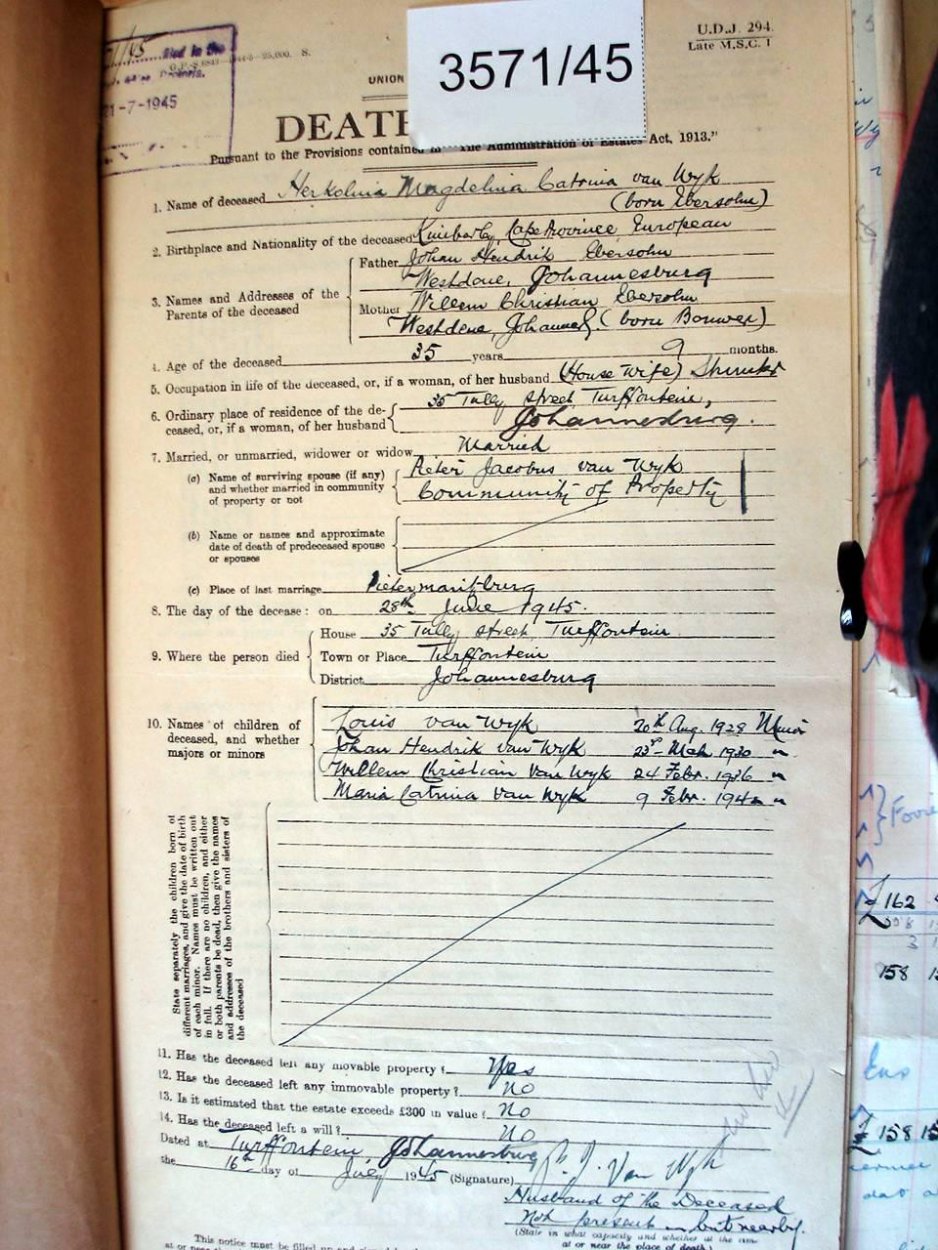 U.D.J. 294.
Late M.S.C. 1
3571/45
21-7-1945
UNION
DEATH
Pursuant to the Provisions contained in "The Administration of Estates Act, 1913."
1. Name of deceased Herkolina Magdelina Catrina van Wyk
(born Ebersohn)
2. Birthplace and Nationality of the deceased Kimberly, Cape Province European
3. Names and Addresses of the Parents of the deceased
Father Johan Hendrik Ebersohn
Westdene, Johannesburg
Mother Willem Christian Ebersohn
Westdene, Johannesb. (born Bouwer)
4. Age of the deceased 35 years 9 months.
5. Occupation in life of the deceased, or, if a woman, of her husband (House Wife)
6. Ordinary place of residence of the deceased, or, if a woman, of her husband
35 Tully street Turffontein,
Johannesburg.
7. Married, or unmarried, widower or widow Married
(a) Name of surviving spouse (if any)
and whether married in community
of property or not
Pieter Jacobus van Wyk
Community of Property
(b) Name or names and approximate
date of death of predeceased spouse
or spouses
(c) Place of last marriage Pietermaritzburg
8. The day of the decease: on 28th June 1945.
9. Where the person died
House 35 Tully street, Turffontein.
Town or Place Turffontein
District Johannesburg
10. Names of children of
deceased, and whether
majors or minors
Louis van Wyk 20th Aug. 1928 Minor
Johan Hendrik van Wyk 23rd Mch 1930 "
Willem Christian van Wyk 24 Febr. 1936 "
Maria Catrina van Wyk 9 Febr. "
State separately the children born of
different marriages, and give the date of birth
of each minor. Names must be written out
in full. If there are no children, and either
or both parents be dead, then give the names
and addresses of the brothers and sisters of
the deceased
11. Has the deceased left any movable property? Yes
12. Has the deceased left any immovable property? No
13. Is it estimated that the estate exceeds £300 in value? No
14. Has the deceased left a will? No
Dated at Turffontein, Johannesburg
the 16th day of July 1945 (Signature) P. J. Van Wyk
Husband of the Deceased
Not present - but nearby.
(State in what capacity and whether at the
at or near the place of death)
This notice must be filled up and signed
£ 162
158
£ 158 15